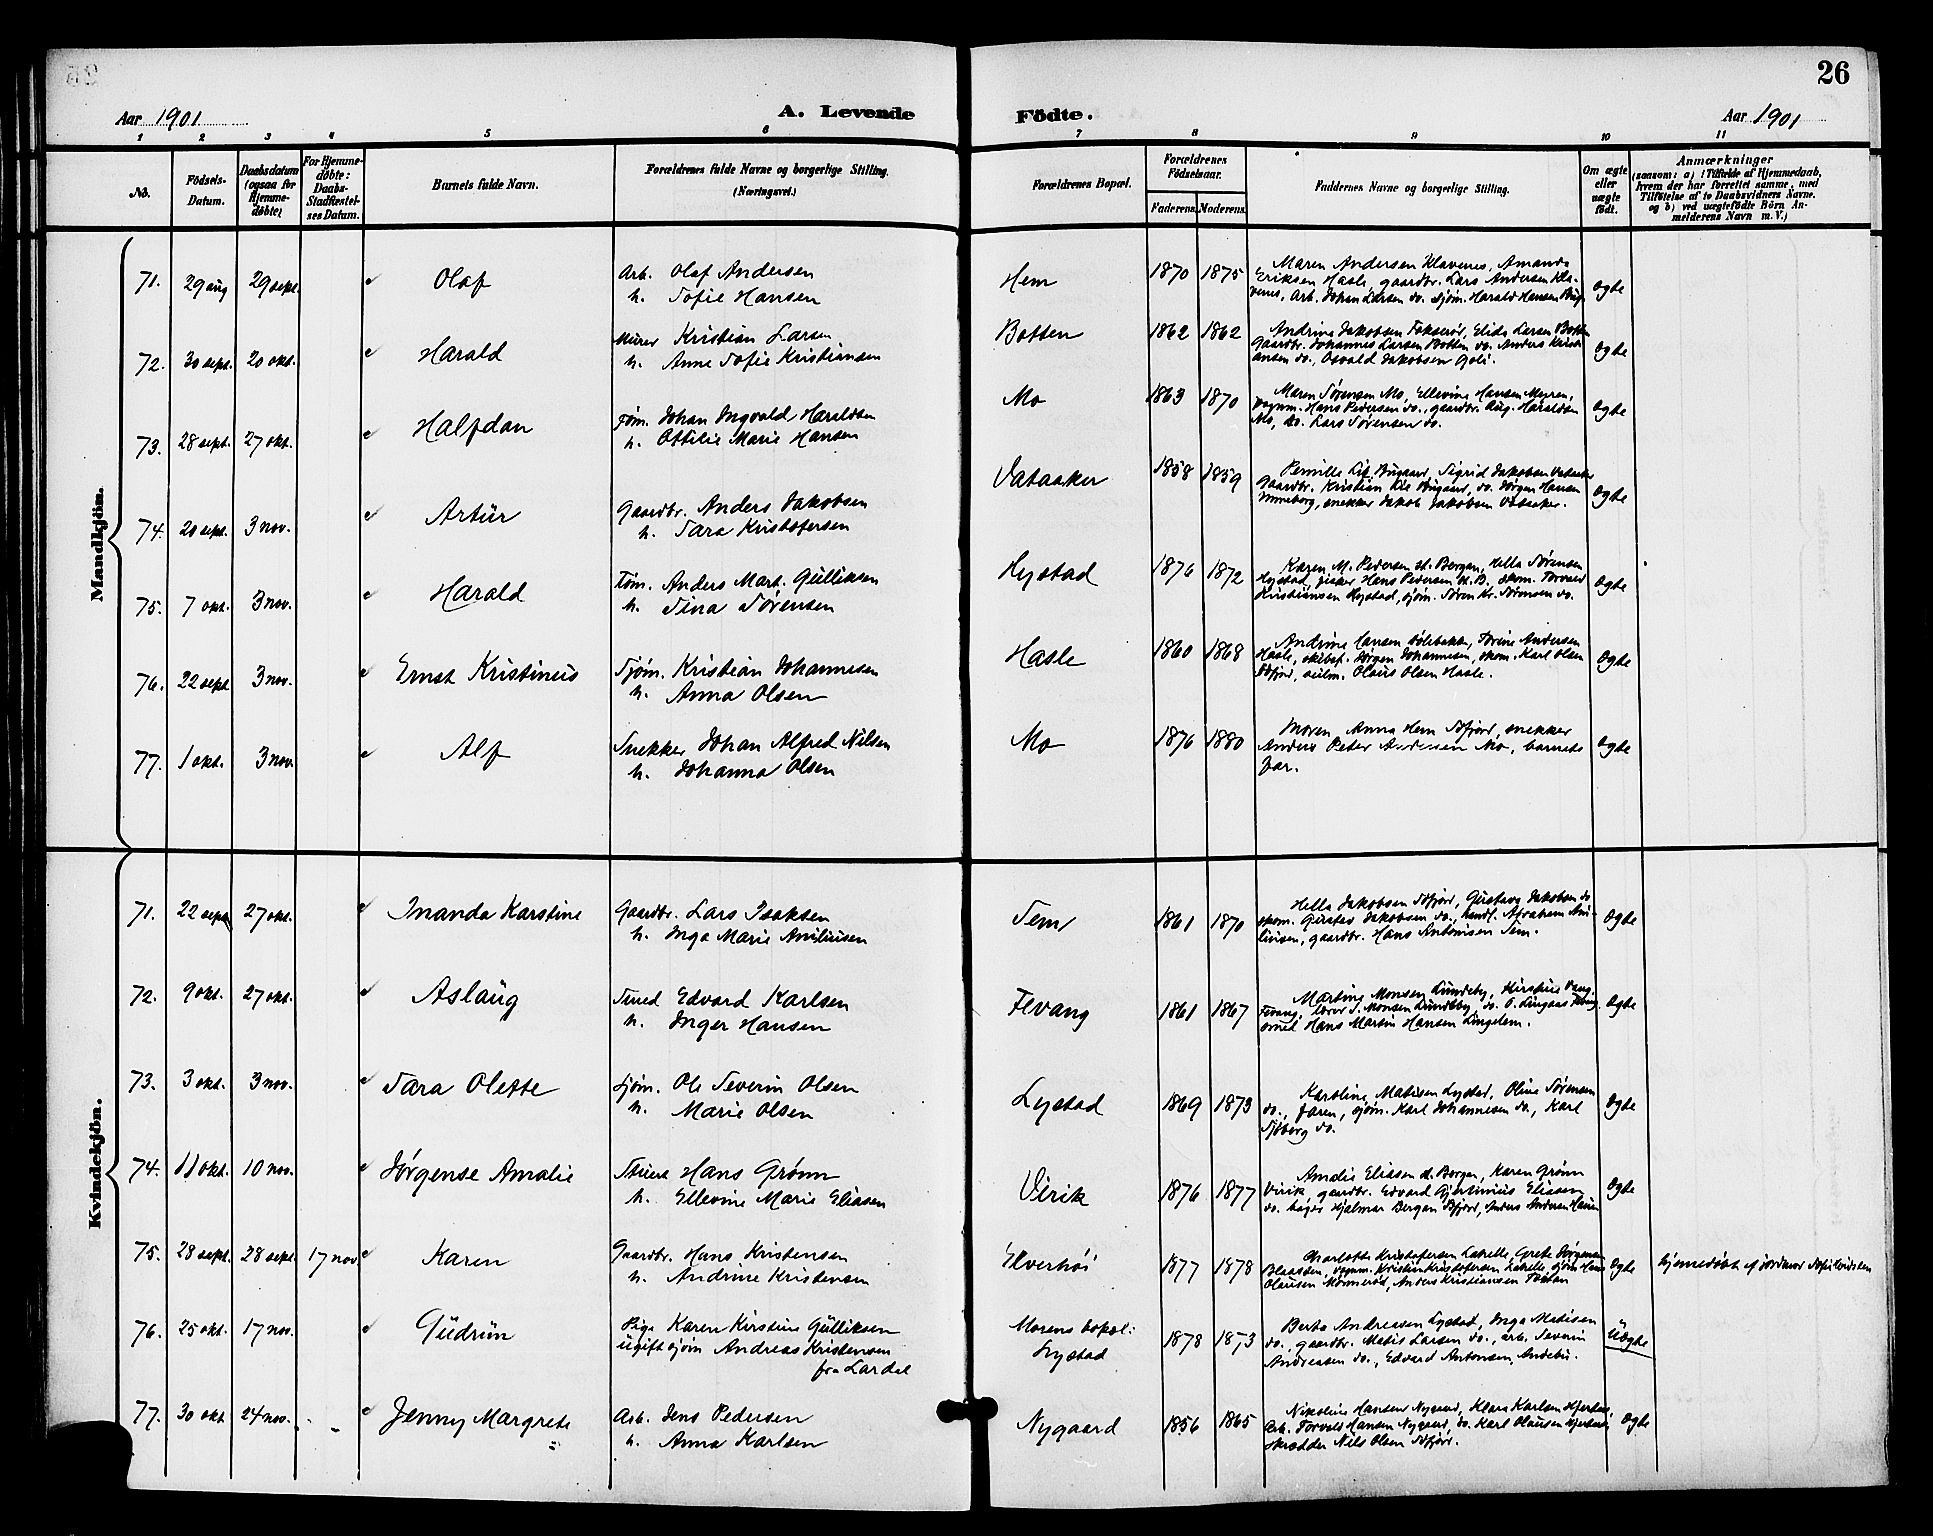 26
Aar 1901
A. Levende Födte.
Aar 1901
1 2 3 4 5 6 7 8 9 10 11
No.
Födsels-Datum.
Daabsdatum (ogsaa for Hjemme-døbte)
For Hjemme-døbte: Daabs-Stadfæstel-ses Datum.
Barnets fulde Navn.
Forældrenes fulde Navne og borgerlige Stilling.
(Næringsvei.)
Forældrenes Bopæl.
Forældrenes Födselsaar.
Faderens. Moderens.
Faddernes Navne og borgerlige Stilling.
Om ægte eller uægte født.
Anmærkninger
(saasom: a) i Tilfælde af Hjemmedaab,
hvem der har forrettet samme, med
Tilføielse af to Daabsvidners Navne,
og b) ved uægtefødte Börn An-
melderens Navn m. V.)
Mandkjön.
71. 29 aug 29 sept. Olaf Arb. Olaf Andersen Hem 1870 1875 Maren Andersen Klavenes, Amanda
h. Sofie Hansen Eriksen Hasle, gaardbr. Lars Andersen Kla-
venes, Arb. Johan Larsen do. sjøm. Harald Hansen ægte
72. 30 sept. 20 okt. Harald Murer Kristian Larsen Botten 1862 1862 Andrine Jakobsen Fokserød, Elida Larsen Botten
h. Anne Sofie Kristiansen gaardbr. Johannes Larsen Botten do. Anders Kristi-
ansen do, Osvald Jakobsen Goli. ægte
73. 28 sept. 27 okt. Halfdan Tøm. Johan Ingvald Haraldsen Mo 1863 1870 Maren Sørensen Mo, Ellevine Hansen Myren,
h. Ottilie Marie Hansen vognm. Hans Pedersen do., gaardbr. Aug. Haraldsen
Mo, do. Lars Sørensen do. ægte
74. 20 sept. 3 nov. Artür Gaardbr. Anders Jakobsen Vataaker 1858 1859 Pernille Lie Bugaard, Sigrid Jakobsen Vataaker
h. Sara Kristofersen Gaardbr. Kristian Lie Bugaard, do. Jørgen Hansen
snekker Jakob Jakobsen Vataaker. ægte
75. 7 okt. 3 nov. Harald Tøm. Anders Mart. Gulliksen Hystad 1876 1872 Karen M. Pedersen st. Bergan, Hella Sørensen
h. Sina Sørensen Hystad, fisker Hans Pedersen st. B. skom. Torvald
Kristiansen Hystad, sjøm. Søren Kr. Sørensen do. ægte
76. 22 sept 3 nov. Ernst Kristinius Sjøm. Kristian Johannesen Hasle 1860 1868 Andrine Hansen Sølebakke, Torine Andersen
h. Anna Olsen Hasle, skibsf. Jørgen Johannesen, skom. Karl Olsen
Sdfjord, seilm. Olaus Olsen Hasle. ægte
77. 1 okt. 3 nov. Alf Snekker Johan Alfred Nilsen Mo 1876 1880 Moren Anna Hem Sdfjord, snekker
h. Johanna Olsen Anders Peter Andersen Mo, barnets
far. ægte
Kvindekjön.
71. 22 sept. 27 okt. Inanda Karstine Gaardbr. Lars Isaksen Sem 1861 1870 Hella Jakobsen Sdfjord, Gustava Jakobsen do
h. Inga Marie Amliusen skom. Gustav Jakobsen do., handl. Abraham Am-
liusen, gaardbr. Hans Antonisen Sem. ægte
72. 9 okt. 27 okt. Aslaug Smed Edvard Karlsen Fevang 1861 1867 Martine Monsen Lundeby, Kirstine Vang,
h. Inger Hansen Fevang, lærer J. Monsen Lundeby, do. O. Lingaas Fevang
smed Hans Martin Hansen Lingelem. ægte
73. 3 okt. 3 nov. Sara Olette Sjøm. Ole Severin Olsen Lystad 1869 1873 Karoline Matisen Lystad, Oline Sørensen
h. Marie Olsen do., faren, sjøm. Karl Johannesen do., Karl
Sjøberg do. ægte
74. 11 okt. 10 nov. Jørgense Amalie Stuert Hans Grønn Virik 1876 1877 Amalie Eliasen st. Bergan, Karen Grønn
h. Ellevine Marie Eliasen Virik, gaardbr. Edvard Gjertinius Eliasen
do. bager Hjalmar Bergan Sdfjord, Anders Andersen ægte
75. 28 sept. 28 sept. 17 nov Karen Gaardbr. Hans Kristensen Elverhöi 1877 1878 Charlotte Kristofersen Labelle, Grete Jørgensen
h. Andrine Kristensen vognm. Kristian Kristofersen Labelle, sjøm Hans
Olausen Mømmerød, Anders Kristiansen ægte hjemmedøbt af jordmor
76. 25 okt. 17 nov. Gudrün Pige Karen Kirstine Gulliksen Morens bopæl: 1878 1873 Berte Andreasen Lystad, Inga Matisen
ugift sjøm Andreas Kristensen Lystad do., gaardbr. Matis Larsen do., arb. Severin
fra Lardal Andreasen do., Edvard Antonsen, Andebu. Uægte
77. 30 okt 24 nov. Jenny Margrete Arb. Jens Pedersen Nygaard 1856 1865 Nikoline Hansen Nygaard, Klara Karlsen
h. Anna Karlsen Arb. Torvald Hansen Nygaard, do. Karl Olausen
skrædder Nils Olsen Sdfjord. ægte